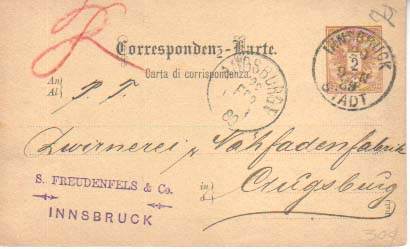 R
Correspondenz-Karte.
Carta di corrispondenza.
An
Al
P. T.
AUGSBURG
INNSBRUCK
2
STADT
Zwirnerei & Nähfadenfabrik
in
Augsburg
S. FREUDENFELS & Co.
INNSBRUCK
304